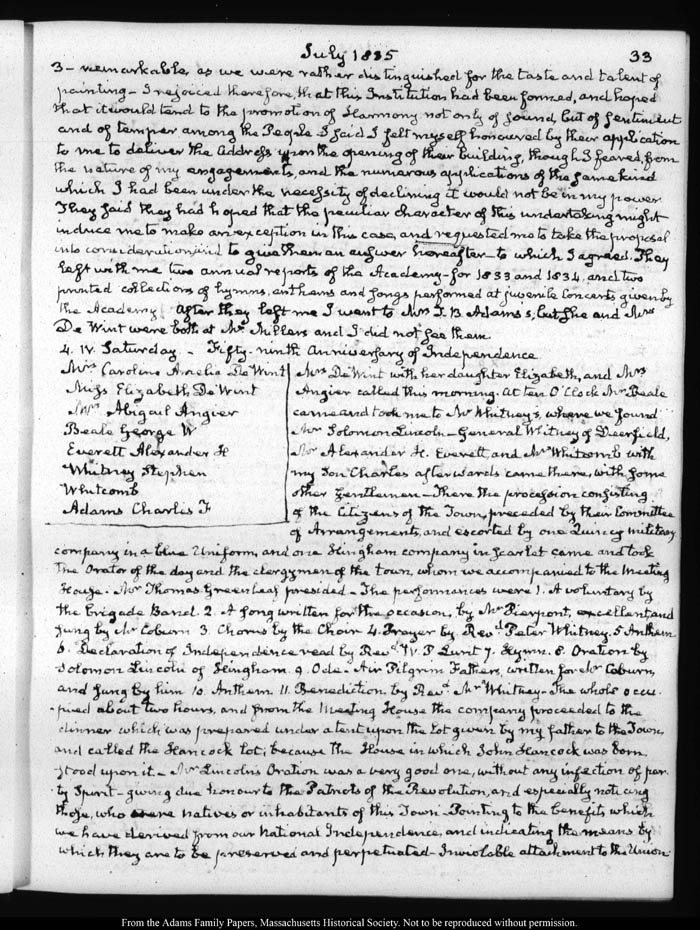 July 1835 33
3 - remarkable, as we were rather distinguished for the taste and talent of
painting - I rejoiced therefore, that this Institution had been formed, and hoped
that it would tend to the promotion of Harmony not only of sound, but of sentiment
and of temper among the People. I said I felt myself honoured by their application
to me to deliver the Address upon the opening of their building, though I feared, from
the nature of my engagements, and the numerous applications of the same kind
which I had been under the necessity of declining it would not be in my power
They said they had hoped that the peculiar character of this undertaking might
induce me to make an exception in this case, and requested me to take the proposal
into consideration, and to give them an answer hereafter - to which I agreed. They
left with me two annual reports of the Academy - for 1833 and 1834. and two
printed collections of hymns, anthems and songs performed at juvenile Concerts given by
the Academy. After they left me I went to Mrs T. B Adams's, but she and Mrs
De Wint were both at Mr Millers and I did not see them
4. IV. Saturday - Fifty-ninth Anniversary of Independence
Mrs Caroline Amelia De Wint
Miss Elizabeth De Wint
Mrs Abigail Angier
Beale George W
Everett Alexander H
Whitney Stephen
Whitcomb
Adams Charles F
Mrs De Wint with her daughter Elizabeth, and Mrs
Angier called this morning. At ten O'Clock Mr Beale
came and took me to Mr Whitney's, where we found
Mr Solomon Lincoln - General Whitney of Deerfield,
Mr Alexander H. Everett, and Mr Whitcomb with
my Son Charles afterwards came there, with some
other Gentlemen - There the procession consisting
of the Citizens of the Town, preceded by their Committee
of Arrangements, and escorted by one Quincy military
company in a blue Uniform, and one Hingham company in Scarlet came and took
The Orator of the day and the clergymen of the town, whom we accompanied to the Meeting
House. Mr Thomas Greenleaf presided - The performances were 1. A voluntary by
the Brigade Band. 2. A song written for the occasion, by Mr Pierpont, excellent, and
sung by Mr Coburn 3. Chorus by the Choir 4. Prayer by Revd Peter Whitney. 5 Anthem
6. Declaration of Independence read by Revd W. P Lunt 7. Hymn. 8. Oration by
Solomon Lincoln of Hingham. 9. Ode - Air Pilgrim Fathers, written for Mr Coburn,
and sung by him 10. Anthem. 11. Benediction by Revd Mr Whitney - The whole occu-
-pied about two hours, and from the Meeting House the company proceeded to the
dinner which was prepared under a tent upon the lot given by my father to the Town,
and called the Hancock lot; because the House in which John Hancock was born
stood upon it - Mr Lincoln's Oration was a very good one, without any infection of par-
ty Spirit - giving due honour to the Patriots of the Revolution, and especially noticing
those, who were natives or inhabitants of this Town - Pointing to the benefits which
we have derived from our National Independence, and indicating the means by
which they are to be preserved and perpetuated - Inviolable attachment to the Union
From the Adams Family Papers, Massachusetts Historical Society. Not to be reproduced without permission.